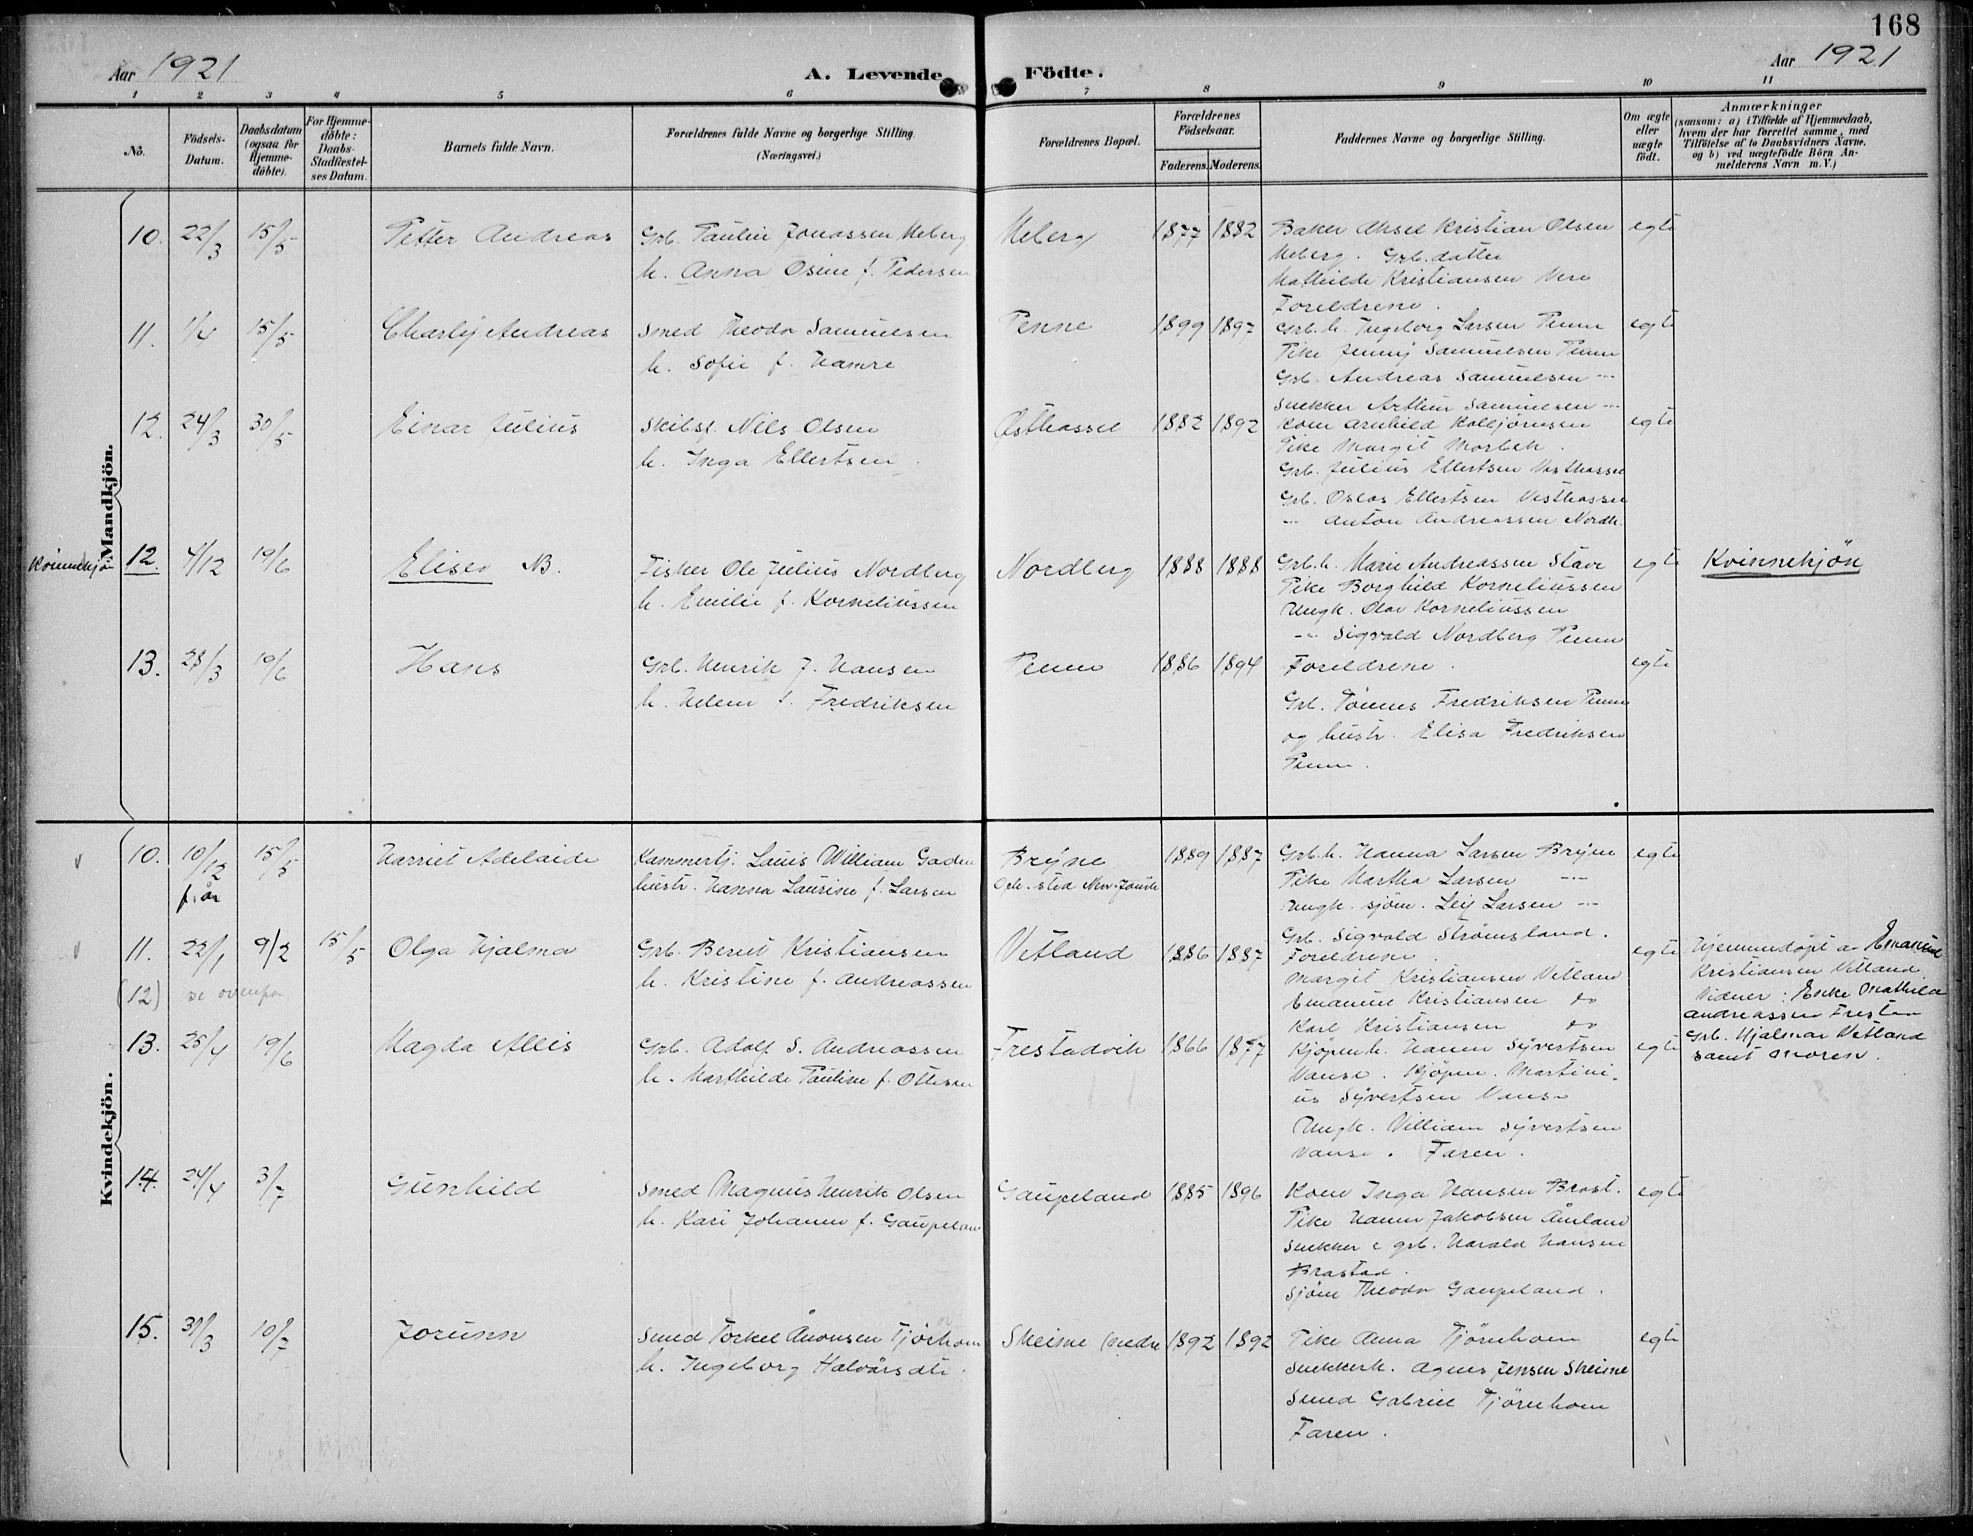 168
Aar 1921
A. Levende Födte.
Aar 1921
1 2 3 4 5 6 7 8 9 10 11
No.
Födsels-Datum.
Daabsdatum (ogsaa for Hjemme-döbte).
For Hjemme-döbte: Daabs-Stadfæstel-ses Datum.
Barnets fulde Navn.
Forældrenes fulde Navne og borgerlige Stilling.
(Næringsvei.)
Forældrenes Bopæl.
Forældrenes Födselsaar.
Faderens. Moderens.
Faddernes Navne og borgerlige Stilling.
Om ægte eller uægte födt.
Anmærkninger
(saasom: a) i Tilfælde af Hjemmedaab,
hvem der har forrettet samme, med
Tilföielse af to Daabsvidners Navne.
og b) ved uægtefödte Börn An-
melderens Navn m.V.)
Mandkjön.
10. 22/3 15/5 Petter Andreas
Grb. Paulin Jonassen Meberg
h. Anna Osine f. Pedersen
Meberg 1877 1882
Baker Aksel Kristian Olsen
Meberg. Grb.datter
Mathilde Kristiansen Vere
Foreldrene.
egte
11. 1/4 15/5 Charley Andreas
Smed Theodor Samuelsen
h. Sofie f. Hamre
Penne 1899 1897
Grb.h. Ingeborg Larsen Penne
Pike Jenny Samuelsen Penne
Grb. Andreas Samuelsen -"-
Snekker Arthur Samuelsen -"-
egte
12. 24/3 30/5 Einar Julius
Skibsf. Nils Olsen
h. Inga Ellertsen.
Østhassel 1882 1892
Kone Arnhild Kolbjørnsen
Pike Margit Morbek.
Grb. Julius Ellertsen Vesthassel
Grb. Oskar Ellertsen Vesthassel
-"- Anton Andreassen Nordh.
egte
Kvinnekjön
12. 4/12 19/6 Elise NB.
Fisker Ole Julius Nordberg
h. Emilie f. Korneliussen
Nordberg 1888 1888
Grb.h. Marie Andreassen Stave
Pike Borghild Korneliussen
Ungk. Olav Korneliussen
-"- Sigvald Nordberg Penne
egte
Kvinnekjön
13. 28/3 19/6 Hans
Grb. Henrik J. Hansen
h. Helene f. Fredriksen
Penne 1886 1894
Foreldrene.
Grb. Tønnes Fredriksen Penne
og hustr. Elisa Fredriksen
Penne.
egte
Kvindekjön.
10. 10/12 f.år 15/5 Harriet Adelaide
Kammertj. Louis William Gaden
hustr. Hanna Laurine f. Larsen
Brÿne
Oph. sted New-York
1889 1887
Grb.h. Hanna Larsen Brÿne
Pike Martha Larsen -"-
Ungk. sjöm. Leif Larsen -"-
Grb. Sigvald Strømsland.
egte
11. 22/1 9/2 15/5 Olga Hjalma
Grb. Bernt Kristiansen
h. Kristine f. Andreassen
Vetland 1886 1887
Foreldrene.
Margit Kristiansen Vetland
Emanuel Kristiansen do
Karl Kristiansen do
egte
Hjemmedöpt av Emanuel
Kristiansen Vetland
Vidner: Enke Mathilde
Andreassen Frestad
Grb. Hjalmar Vetland
samt moren.
(12) se ovenfor
13. 25/4 19/6 Magda Allis
Grb. Adolf S. Andreassen
h. Marthilde Pauline f. Ottesen
Frestadvik 1866 1877
Kjöpm.h. Hanne Sÿvertsen
Vanse. Kjöpm. Martini-
us Sÿvertsen Vanse
Ungk. Villiam Sÿvertsen
Vanse. Faren.
egte
14. 24/4 3/7 Gunhild
Smed Magnus Henrik Olsen
h. Kari Johanne f. Gaupeland
Gaupeland 1885 1896
Kone Inga Hansen Brast.
Pike Hanne Jakobsen Åmland
Snekker & grb. Harald Hansen
Brastad.
Sjöm Theodor Gaupeland.
egte
15. 31/3 10/7 Jorunn
Smed Torkel Ånonsen Tjörhom
h. Ingeborg Halvårsdtr.
Skeime (nedre 1892 1892
Pike Anna Tjörnhom
Snekkerh. Agnes Jensen Skeime
Smed Gabriel Tjörnhom
Faren.
egte